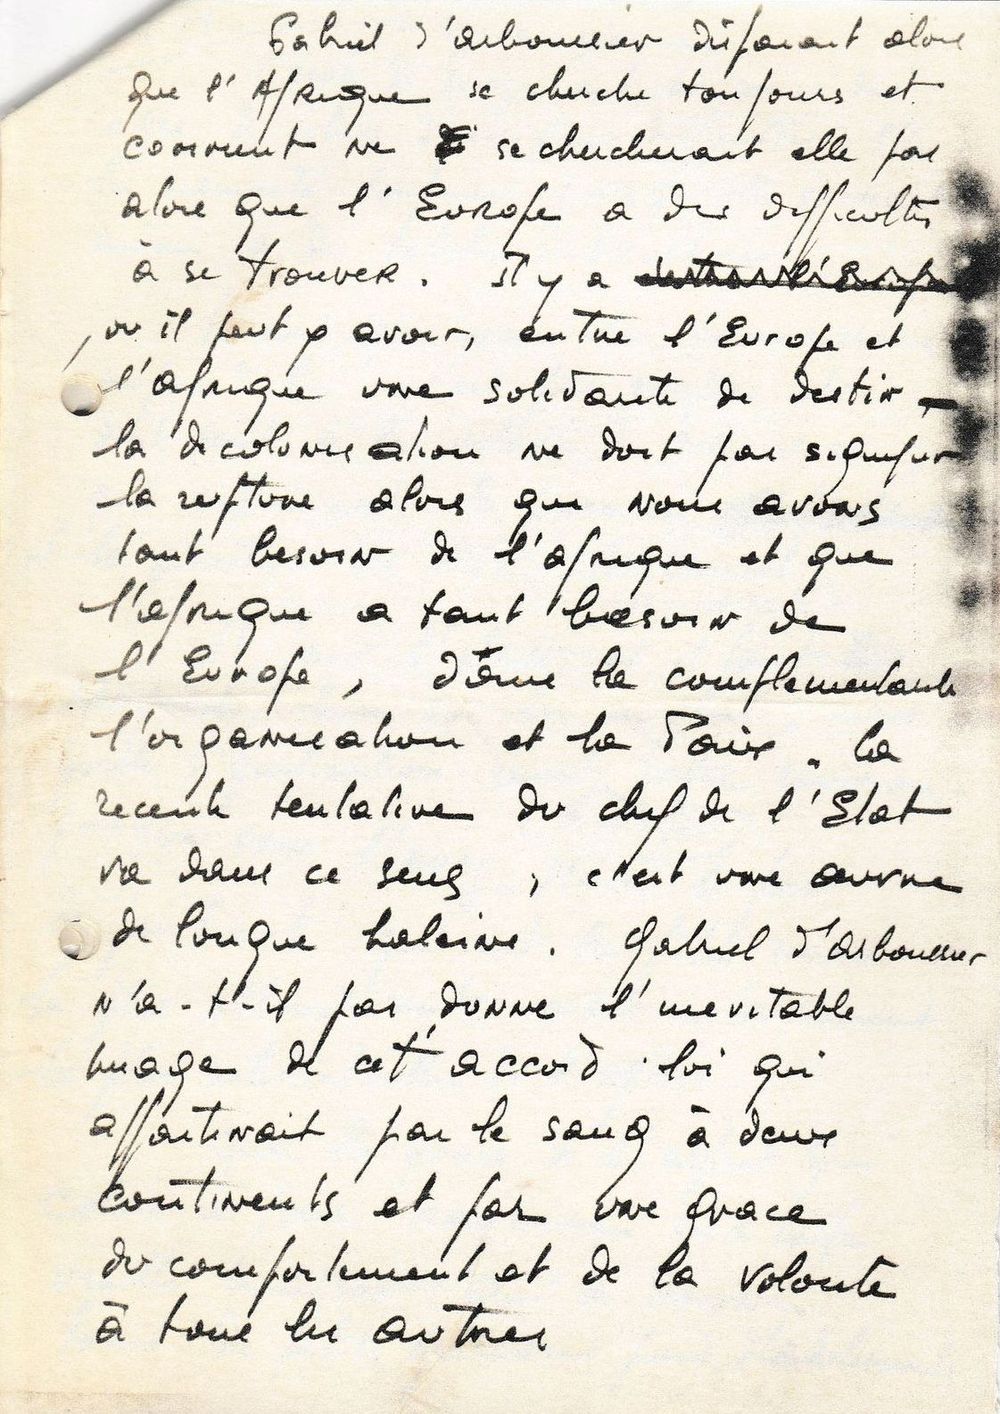 Gabriel d'Arboussier disparait alors
que l'Afrique se cherche toujours et
comment ne se chercherait elle pas
alors que l'Europe a des difficultés
à se trouver. Il y a
, ou il peut y avoir, entre l'Europe et
l'afrique une solidarité de destin -
la decolonisation ne doit pas signifier
la rupture alors que nous avons
tant besoin de l'afrique et que
l'afrique a tant besoin de
l'Europe, la complementarité
l'organisation et la Paix. la
recente tentative du chef de l'Etat
va dans ce sens, c'est une œuvre
de longue haleine. Gabriel d'Arboussier
n'a-t-il pas donné l'inevitable
image de cet accord lui qui
appartenait par le sang à deux
continents et par une grace
du comportement et de la volonté
à tous les autres